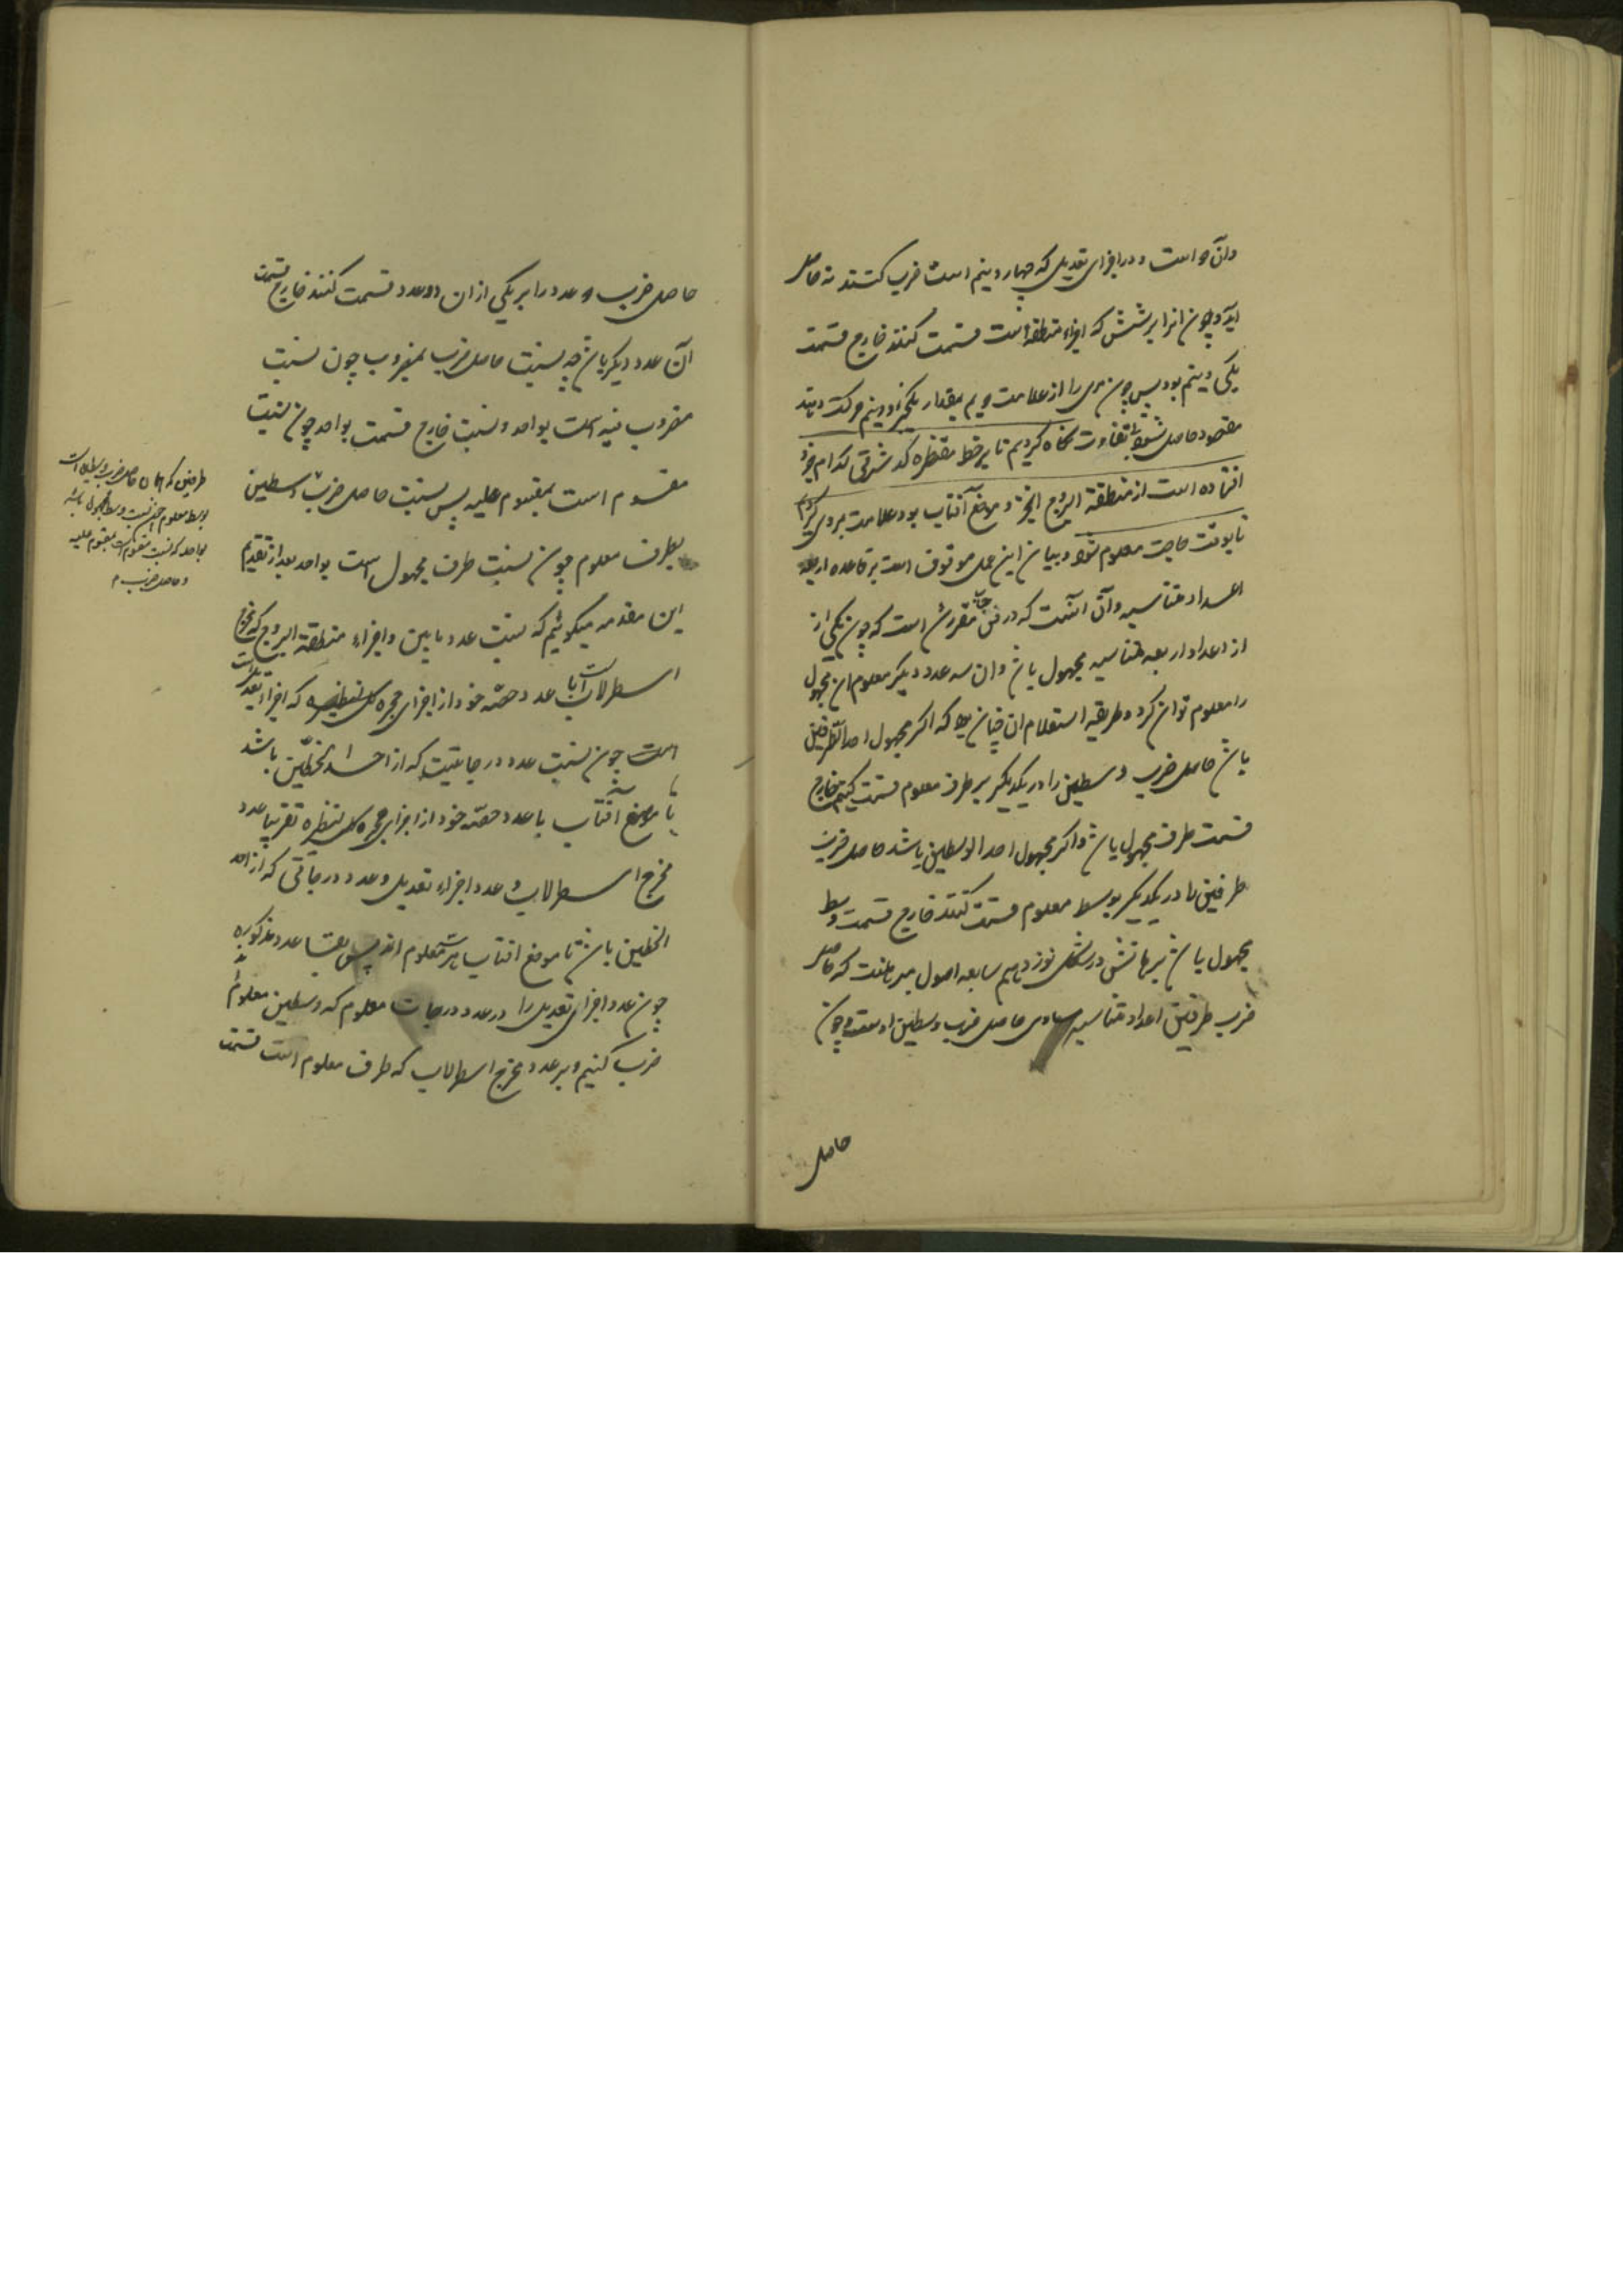 وان و است و در اجزای تعدیل که چهار و نیم است ضرب کنند نه حاصل
آید و چون انرا بر شش که اجزاء منطقه است قسمت کنند خارج قسمت
یکی و نیم بود پس چون مری را از علامت ویم بمقدار یکجزو و نیم حرکت دهند
مقصود حاصل شود تفاوت نگاه کردیم تا بر خط مقنطره که شرقی کدام جزو
افتاده است از منطقة البروج آنجزو موضع آفتاب بود علامت بروی کردیم
تا بوقت حاجت معلوم شود و بیان این عمل موقوف است بر قاعده اربعه
اعداد متناسبه و آن آنست که در فن حساب مقرر شده است که چون یکی از
از اعداد اربعه متناسبه مجهول باشد و ان سه عدد دیگر معلوم ان مجهول
را معلوم توان کرد و طریقه استعلام ان چنان بود که اگر مجهول احد الطرفین
باشد حاصل ضرب وسطین را در یکدیگر بر طرف معلوم قسمت کنیم خارج
قسمت طرف مجهول باشد و اگر مجهول احد الوسطین باشد حاصل ضرب
طرفین را در یکدیگر بوسط معلوم قسمت کنند خارج قسمت وسط
مجهول باشد برهانش در شکل نوزدهم سابعه اصول مبرهنست که حاصل
ضرب طرفین اعداد متناسبه مساوی حاصل ضرب وسطین اوست و چون
حاصل
حاصل ضرب دو عدد را بر یکی از ان دو عدد قسمت کنند خارج قسمت
آن عدد دیگر باشد چه نسبت حاصل ضرب بمضروب چون نسبت
مضروب فیه است بواحد و نسبت خارج قسمت بواحد چون نسبت
مقسوم است بمقسوم علیه پس نسبت حاصل ضرب وسطین
بطرف معلوم چون نسبت طرف مجهول است بواحد بعد از تقدیم
این مقدمه میگوئیم که نسبت عدد مابین و اجزاء منطقة البروج که مخرج
اسطرلاب است با عدد حصه خود از اجزای حجره کل مقنطره که اجزاء تعدیل است
است چون نسبت عدد درجاتیست که از احد الخطین باشد
تا موضع افتاب با عدد حصه خود از اجزای حجره کل مقنطره تقریبا عدد
مخرج اسطرلاب و عدد اجزاء تعدیل و عدد درجاتی که از احد
الخطین باشد تا موضع افتاب هر سه معلوم اند پس بقاعده مذکوره
چون عدد اجزای تعدیل را در عدد درجات معلوم که وسطین معلوم اند
ضرب کنیم و بر عدد مخرج اسطرلاب که طرف معلوم است قسمت
طرفین که همان حاصل ضرب وسطین است
بوسط معلوم چون نسبت وسط مجهول باشد
بواحد که نسبت مقسوم است بمقسوم علیه
و حاصل ضرب م